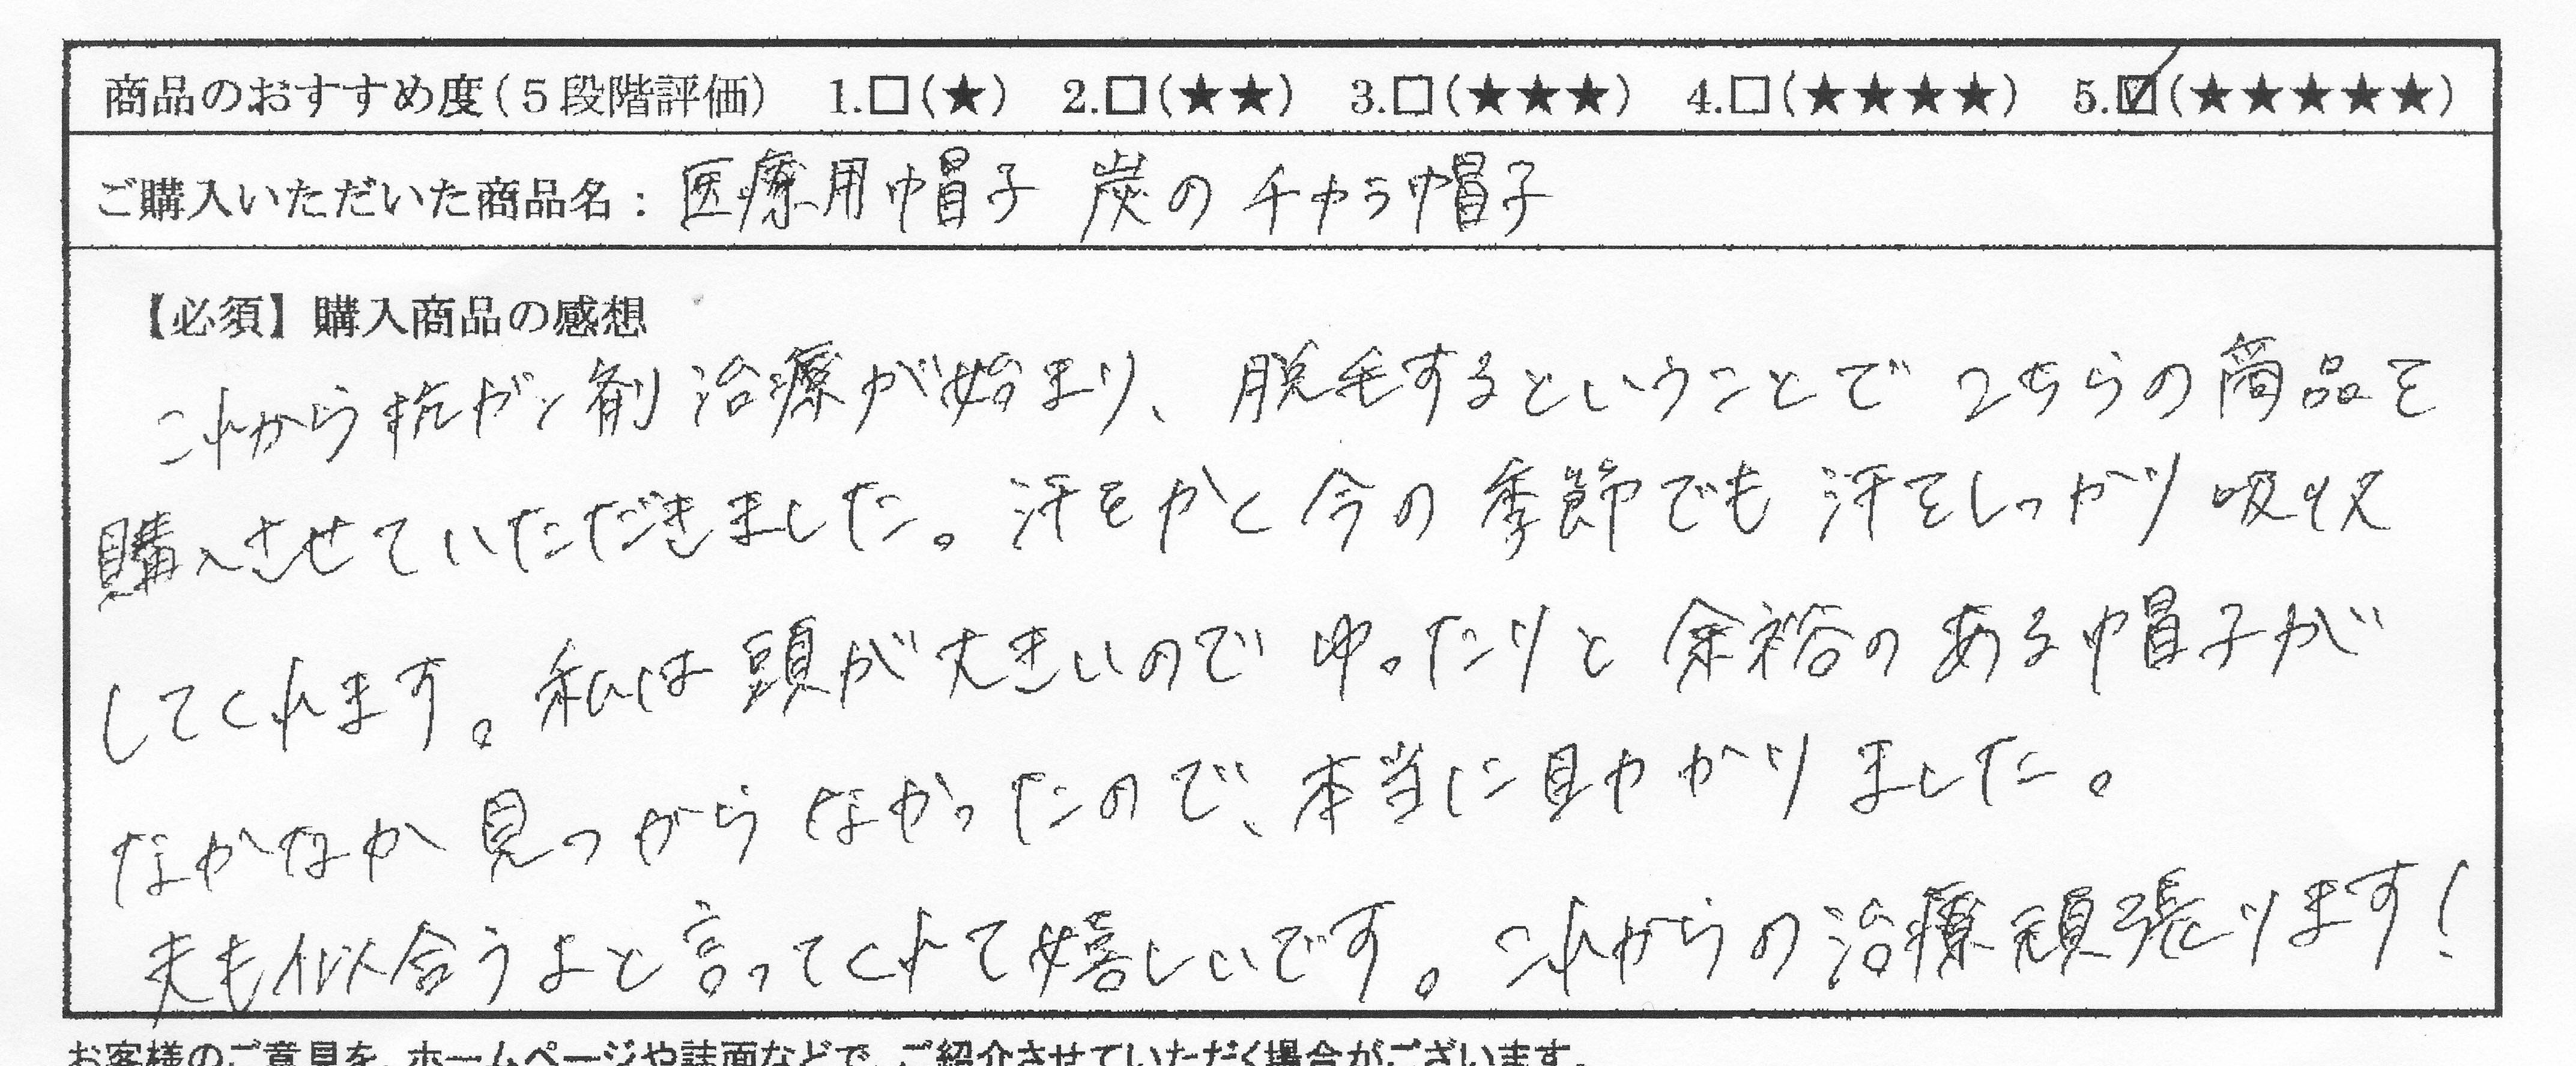 商品のおすすめ度(5段階評価) 1.□(★) 2.□(★★) 3.□(★★★) 4.□(★★★★) 5.☑(★★★★★)
ご購入いただいた商品名: 医療用帽子 炭のチカラ帽子
【必須】購入商品の感想
これから抗ガン剤治療が始まり、脱毛するということでこちらの商品を
購入させていただだきました。汗をかく今の季節でも汗をしっかり吸収
してくれます。私は頭が大きいのでゆったりと余裕のある帽子が
なかなか見つからなかったので、本当に助かりました。
夫も似合うよと言ってくれて嬉しいです。これからの治療頑張ります!
お客様のご意見を、ホームページや誌面などで、ご紹介させていただく場合がございます。